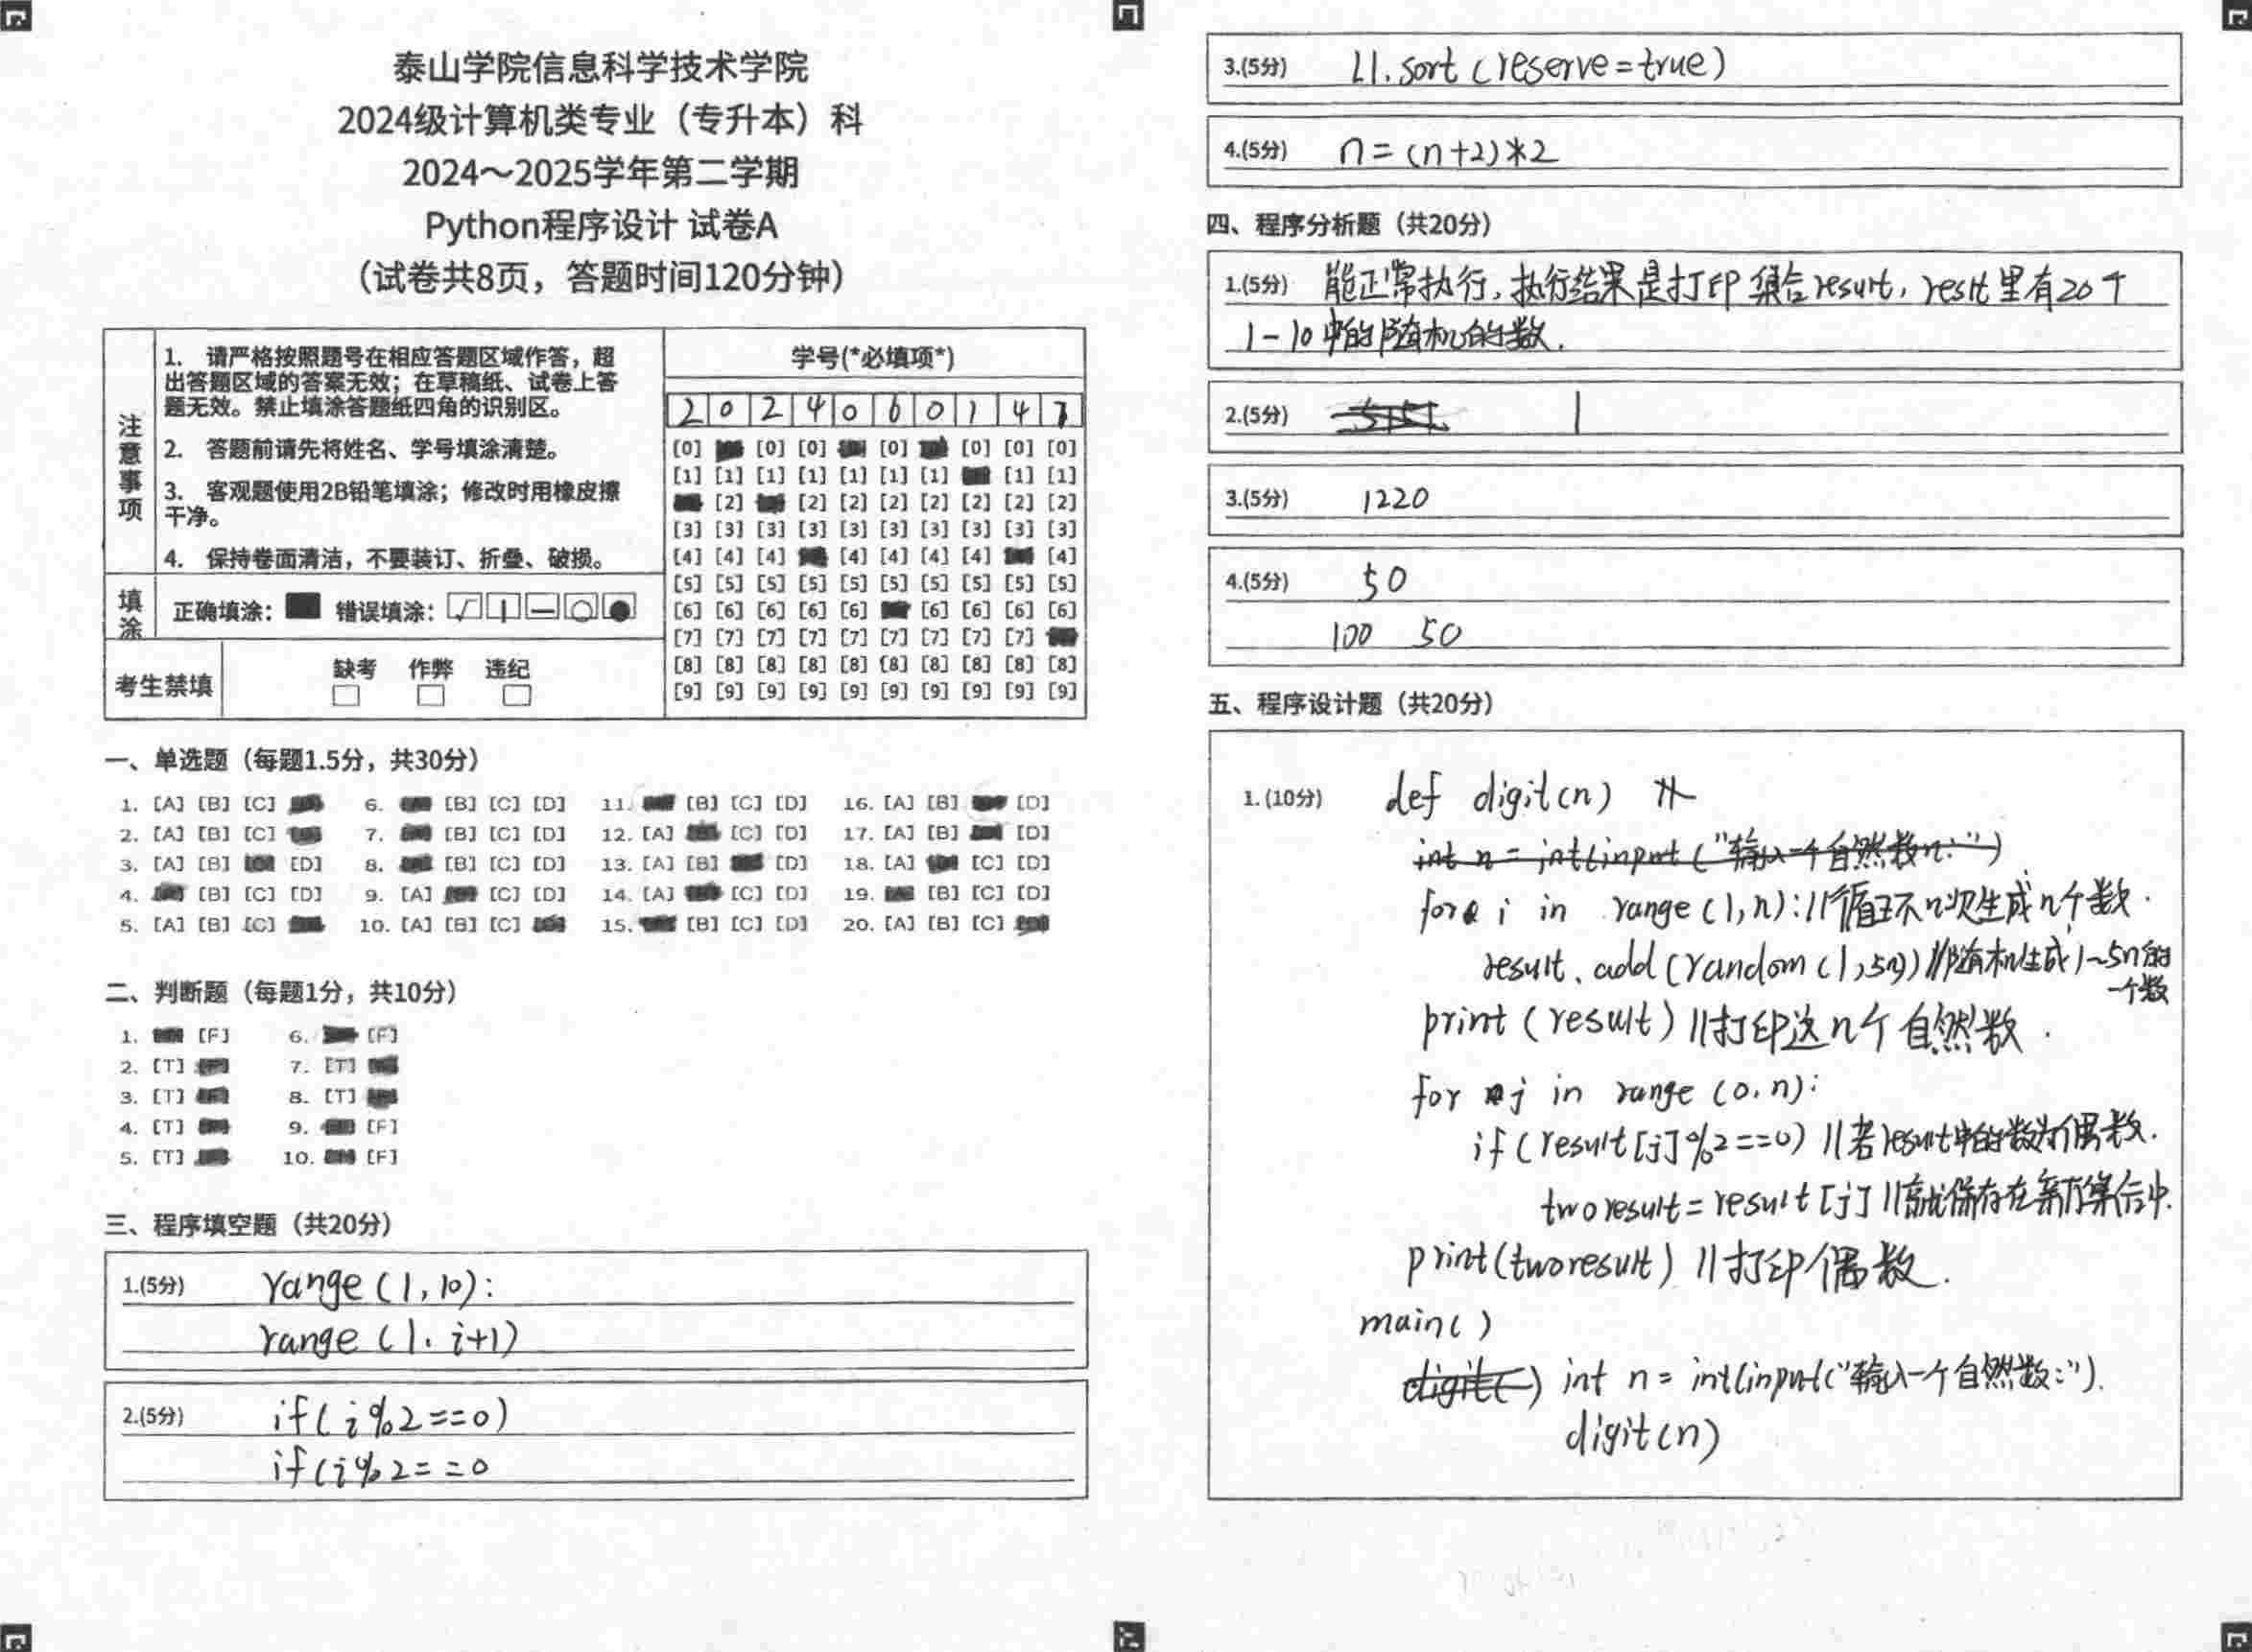 泰山学院信息科学技术学院
2024级计算机类专业（专升本）科
2024～2025学年第二学期
Python程序设计 试卷A
（试卷共8页，答题时间120分钟）
注意事项
1. 请严格按照题号在相应答题区域作答，超
出答题区域的答案无效；在草稿纸、试卷上答
题无效。禁止填涂答题纸四角的识别区。
2. 答题前请先将姓名、学号填涂清楚。
3. 客观题使用2B铅笔填涂；修改时用橡皮擦
干净。
4. 保持卷面清洁，不要装订、折叠、破损。
填涂
正确填涂： 错误填涂：
考生禁填
缺考 作弊 违纪
学号(*必填项*)
2 0 2 4 0 6 0 1 4 7
[0] [0] [0] [0] [0] [0] [0]
[1] [1] [1] [1] [1] [1] [1] [1] [1]
[2] [2] [2] [2] [2] [2] [2] [2]
[3] [3] [3] [3] [3] [3] [3] [3] [3] [3]
[4] [4] [4] [4] [4] [4] [4] [4]
[5] [5] [5] [5] [5] [5] [5] [5] [5] [5]
[6] [6] [6] [6] [6] [6] [6] [6] [6]
[7] [7] [7] [7] [7] [7] [7] [7] [7]
[8] [8] [8] [8] [8] [8] [8] [8] [8] [8]
[9] [9] [9] [9] [9] [9] [9] [9] [9] [9]
一、单选题（每题1.5分，共30分）
1. [A] [B] [C] 6. [B] [C] [D] 11. [B] [C] [D] 16. [A] [B] [D]
2. [A] [B] [C] 7. [B] [C] [D] 12. [A] [C] [D] 17. [A] [B] [D]
3. [A] [B] [D] 8. [B] [C] [D] 13. [A] [B] [D] 18. [A] [C] [D]
4. [B] [C] [D] 9. [A] [C] [D] 14. [A] [C] [D] 19. [B] [C] [D]
5. [A] [B] [C] 10. [A] [B] [C] 15. [B] [C] [D] 20. [A] [B] [C]
二、判断题（每题1分，共10分）
1. [F] 6. [F]
2. [T] 7. [T]
3. [T] 8. [T]
4. [T] 9. [F]
5. [T] 10. [F]
三、程序填空题（共20分）
1.(5分) range(1,10):
range(1,i+1)
2.(5分) if(i%2==0)
if(i%2==0
3.(5分) L1.sort(reserve=true)
4.(5分) n=(n+2)*2
四、程序分析题（共20分）
1.(5分) 能正常执行，执行结果是打印集合result，reslt里有20个
1-10中的随机的数.
2.(5分) 1
3.(5分) 1220
4.(5分) 50
100 50
五、程序设计题（共20分）
1.(10分) def digit(n)
int n=int(input("输入一个自然数n:")
for i in range(1,n)://循环n次生成n个数.
result.add(random(1,5n))//随机生成1~5n的
一个数
print(result)//打印这n个自然数.
for j in range(0,n):
if(result[j]%2==0)//若result中的数为偶数.
tworesult=result[j]//就保存在新的集合中.
print(tworesult)//打印偶数.
main()
digit( ) int n=int(input("输入一个自然数:").
digit(n)